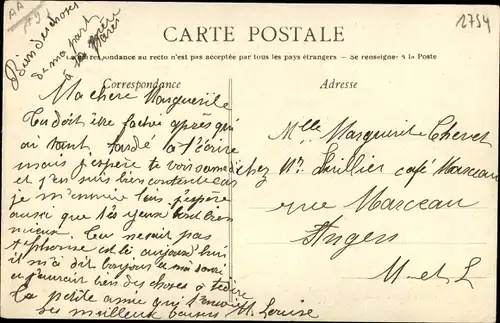 AA
191
2754
Bien des choses
de ma part
à ta mère
Marie
CARTE POSTALE
La correspondance au recto n'est pas acceptée par tous les pays étrangers. — Se renseigner à la Poste
Correspondance
Adresse
Ma chère Marguerite
Tu dois être faché après
au tant tardé à t'écrire
mais j'espère te voir samedi
et j'en suis bien contente car
je m'ennuie j'espère
aussi que tes yeux
mieux. Tu ne sait pas
Alphonse est ici aujourd'hui
il m'a dit bonjour
j'aurais bien des choses à te dire
Ta petite amie qui t'envoie
ses meilleurs baisers M. Louise
Mlle Marguerite Chevet
chez Mr café Marceau
rue Marceau
Angers
M-et-L